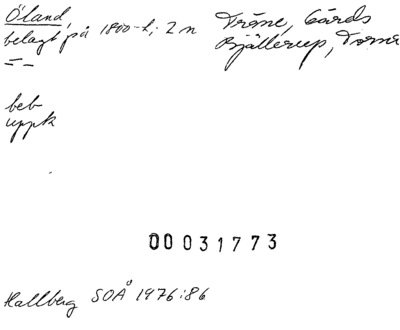 Öland,
belagt på 1800-t; 2 n
= -
Träne, Gärds
Bjällerup, Torna
beb
uppk
00031773
Hallberg SOÅ 1976:86